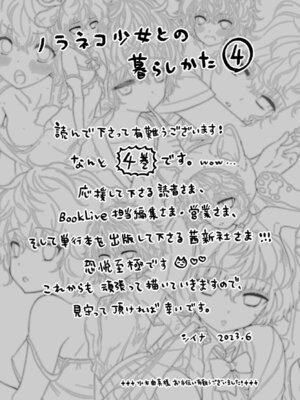 ノラネコ少女との
暮らしかた④
読んで下さって有難うございます!
なんと 4巻 です。wow…
応援して下さる読者さま、
BookLive 担当編集さま・営業さま、
そして単行本を出版して下さる茜新社さま!!!
恐悦至極です
これからも頑張って描いていきますので、
見守って頂ければ幸いです。
シイナ 2023.6
お手伝い有難うございました!